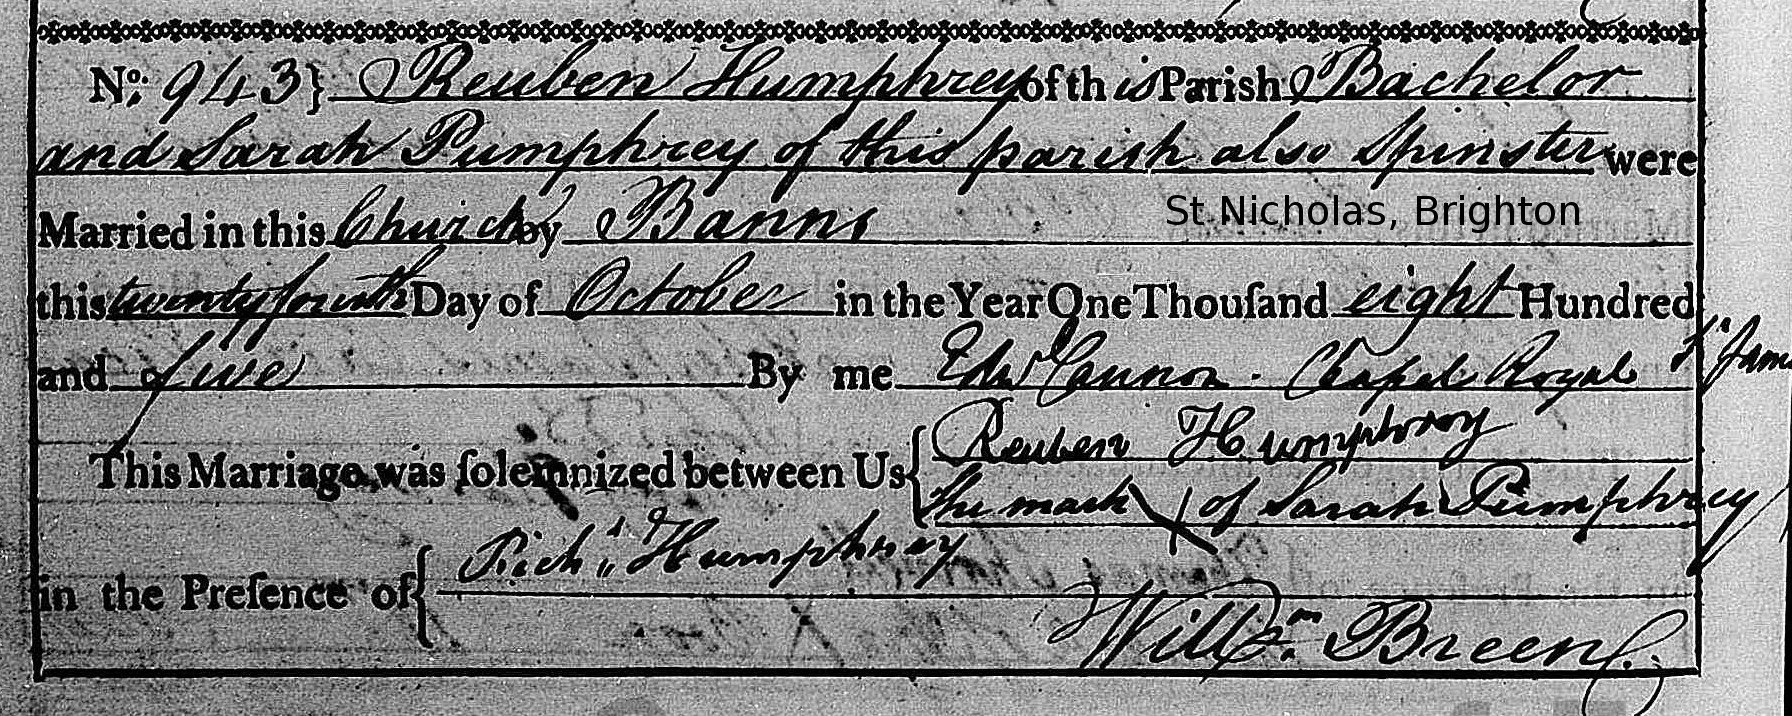 No: 943} Reuben Humphrey of this Parish Bachelor
and Sarah Pumphrey of this parish also Spinster were
Married in this Church by Banns
St Nicholas, Brighton
this twenty fourth Day of October in the Year One Thouſand eight Hundred
and five By me Edwd Cannon. Chapel Royal St James
This Marriage was ſolemnized between Us { Reuben Humphrey
The mark X of Sarah Pumphrey
in the Preſence of { Richd Humphrey
Willm Breen